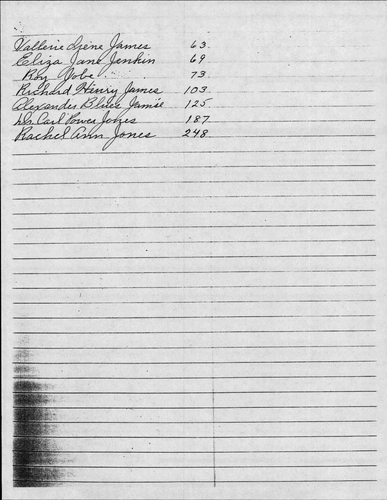 Vallerie Irene James 63
Eliza Jane Jenkin 69
Roy Jobe 73
Richard Henry James 103
Alexander Bluce Jamie 125
Dr. Carl Power Jones 187
Rachel Ann Jones 248